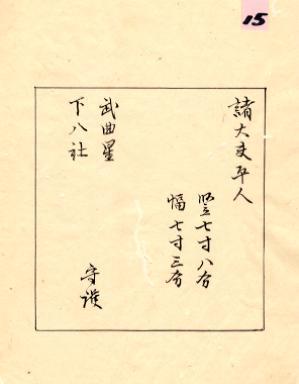 15
諸大支平人
竪七寸八分
幅七寸三分
武曲星
下八社
守護